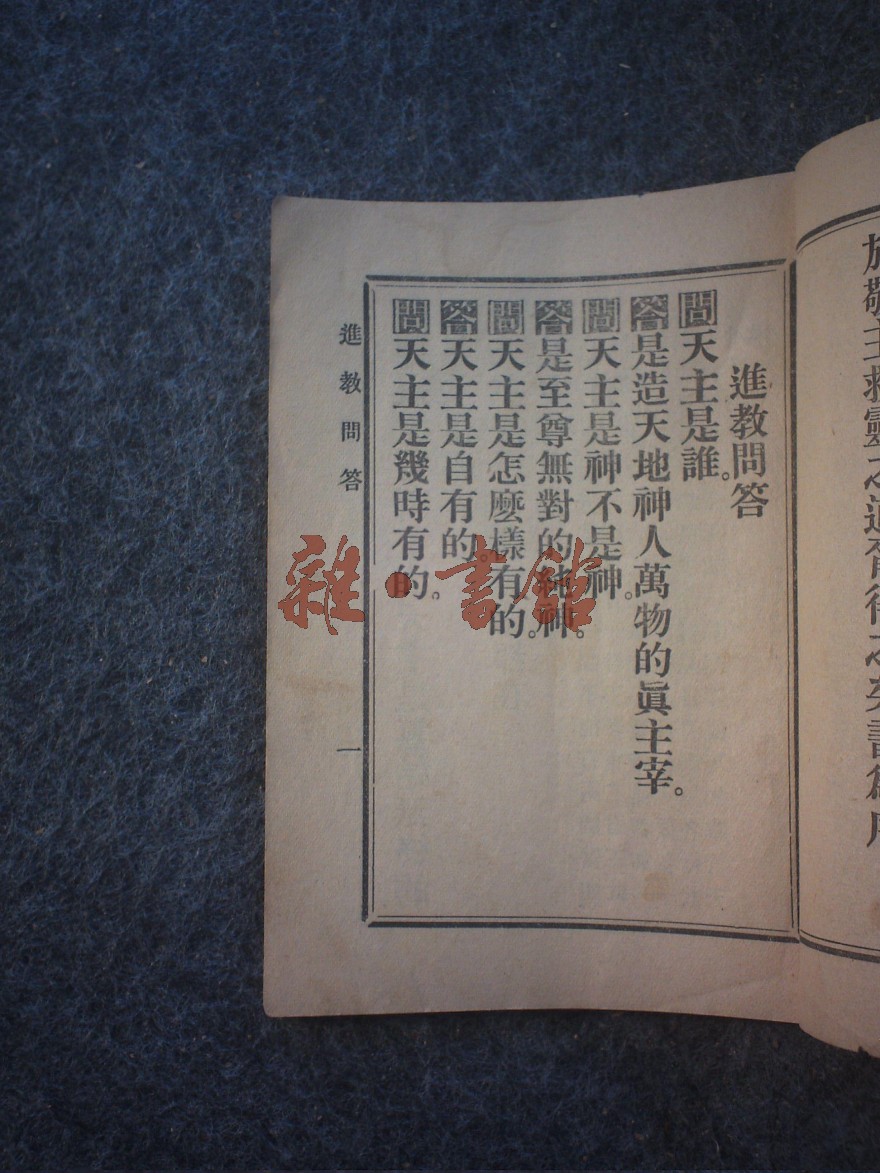 於敬主救靈之道
進教問答
問天主是誰。
答是造天地神人萬物的眞主宰。
問天主是神不是神。
答是至尊無對的純神。
問天主是怎麽樣有的。
答天主是自有的。
問天主是幾時有的。
進教問答
一
雜·書館